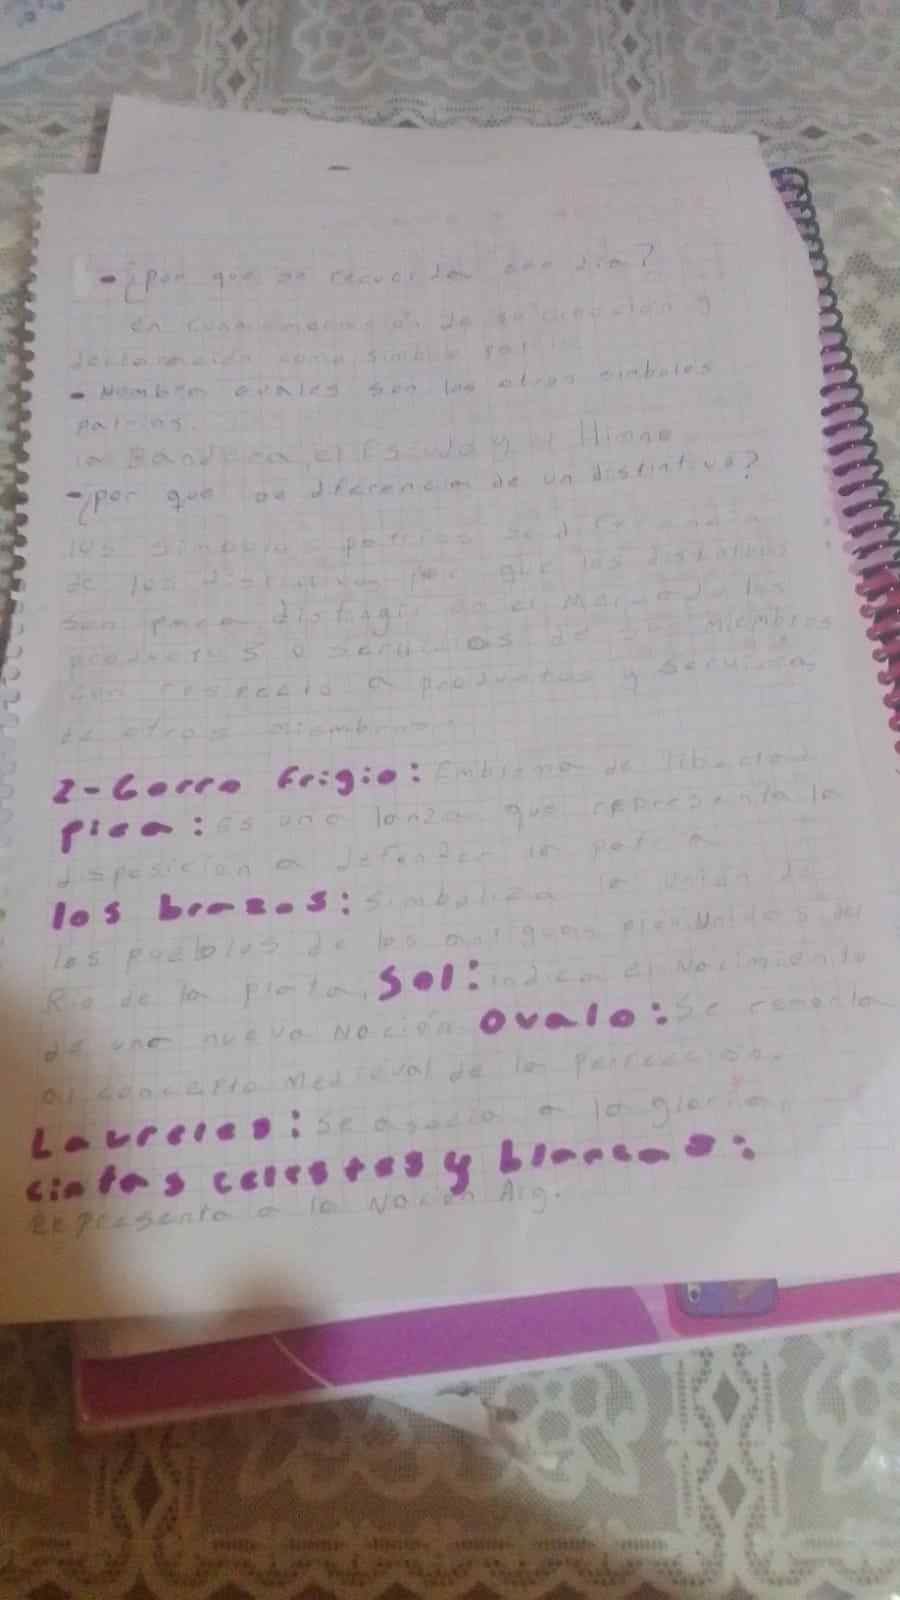 - ¿Por que se recuerda ese dia?
en conmemoración de su creación y
declaración como simbolo patrio
- Nombra cuales son los otros simbolos
patrios.
la Bandera, el Escudo y el Himno
- ¿por que se diferencim de un distintivo?
los simbolos patrios se diferencian
de los distintivos por que los distintivos
son para en el Mercado los
productos o servicios de sus miembros
con respecto a productos y servicios
de otros miembros.
2- Gorro Frigio: Emblema de libertad
pica: es una lanza que representa la
disposicion a defender la patria
los brazos: simboliza la unión de
los pueblos de las antiguas Unidas del
Rio de la plata. Sol: indica el Nacimiento
de una nueva Nación. Ovalo: Se remonta
al concepto Medieval de la perfección.
Laureles: se asocia a la gloria.
cintas celestes y blancas:
representa a la Nación Arg.